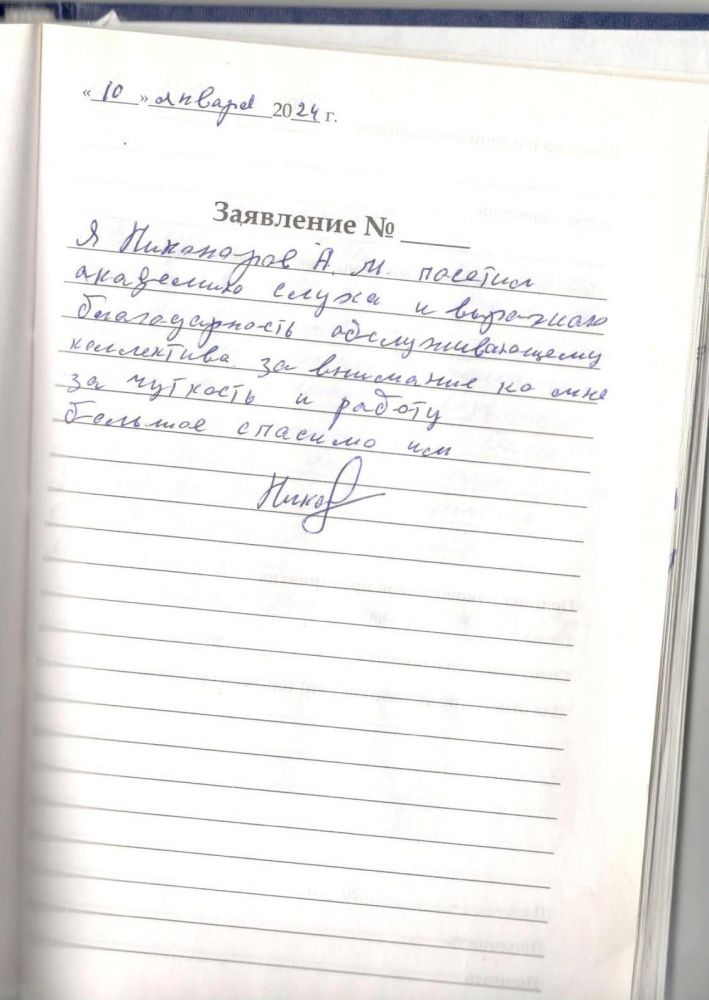 « 10 » января 2024 г.
Заявление № ____
Я Никаноров А. М. посетил
академию слуха и выражаю
благодарность обслуживающему
коллектива за внимание ко мне
за чуткость и работу
большое спасимо им